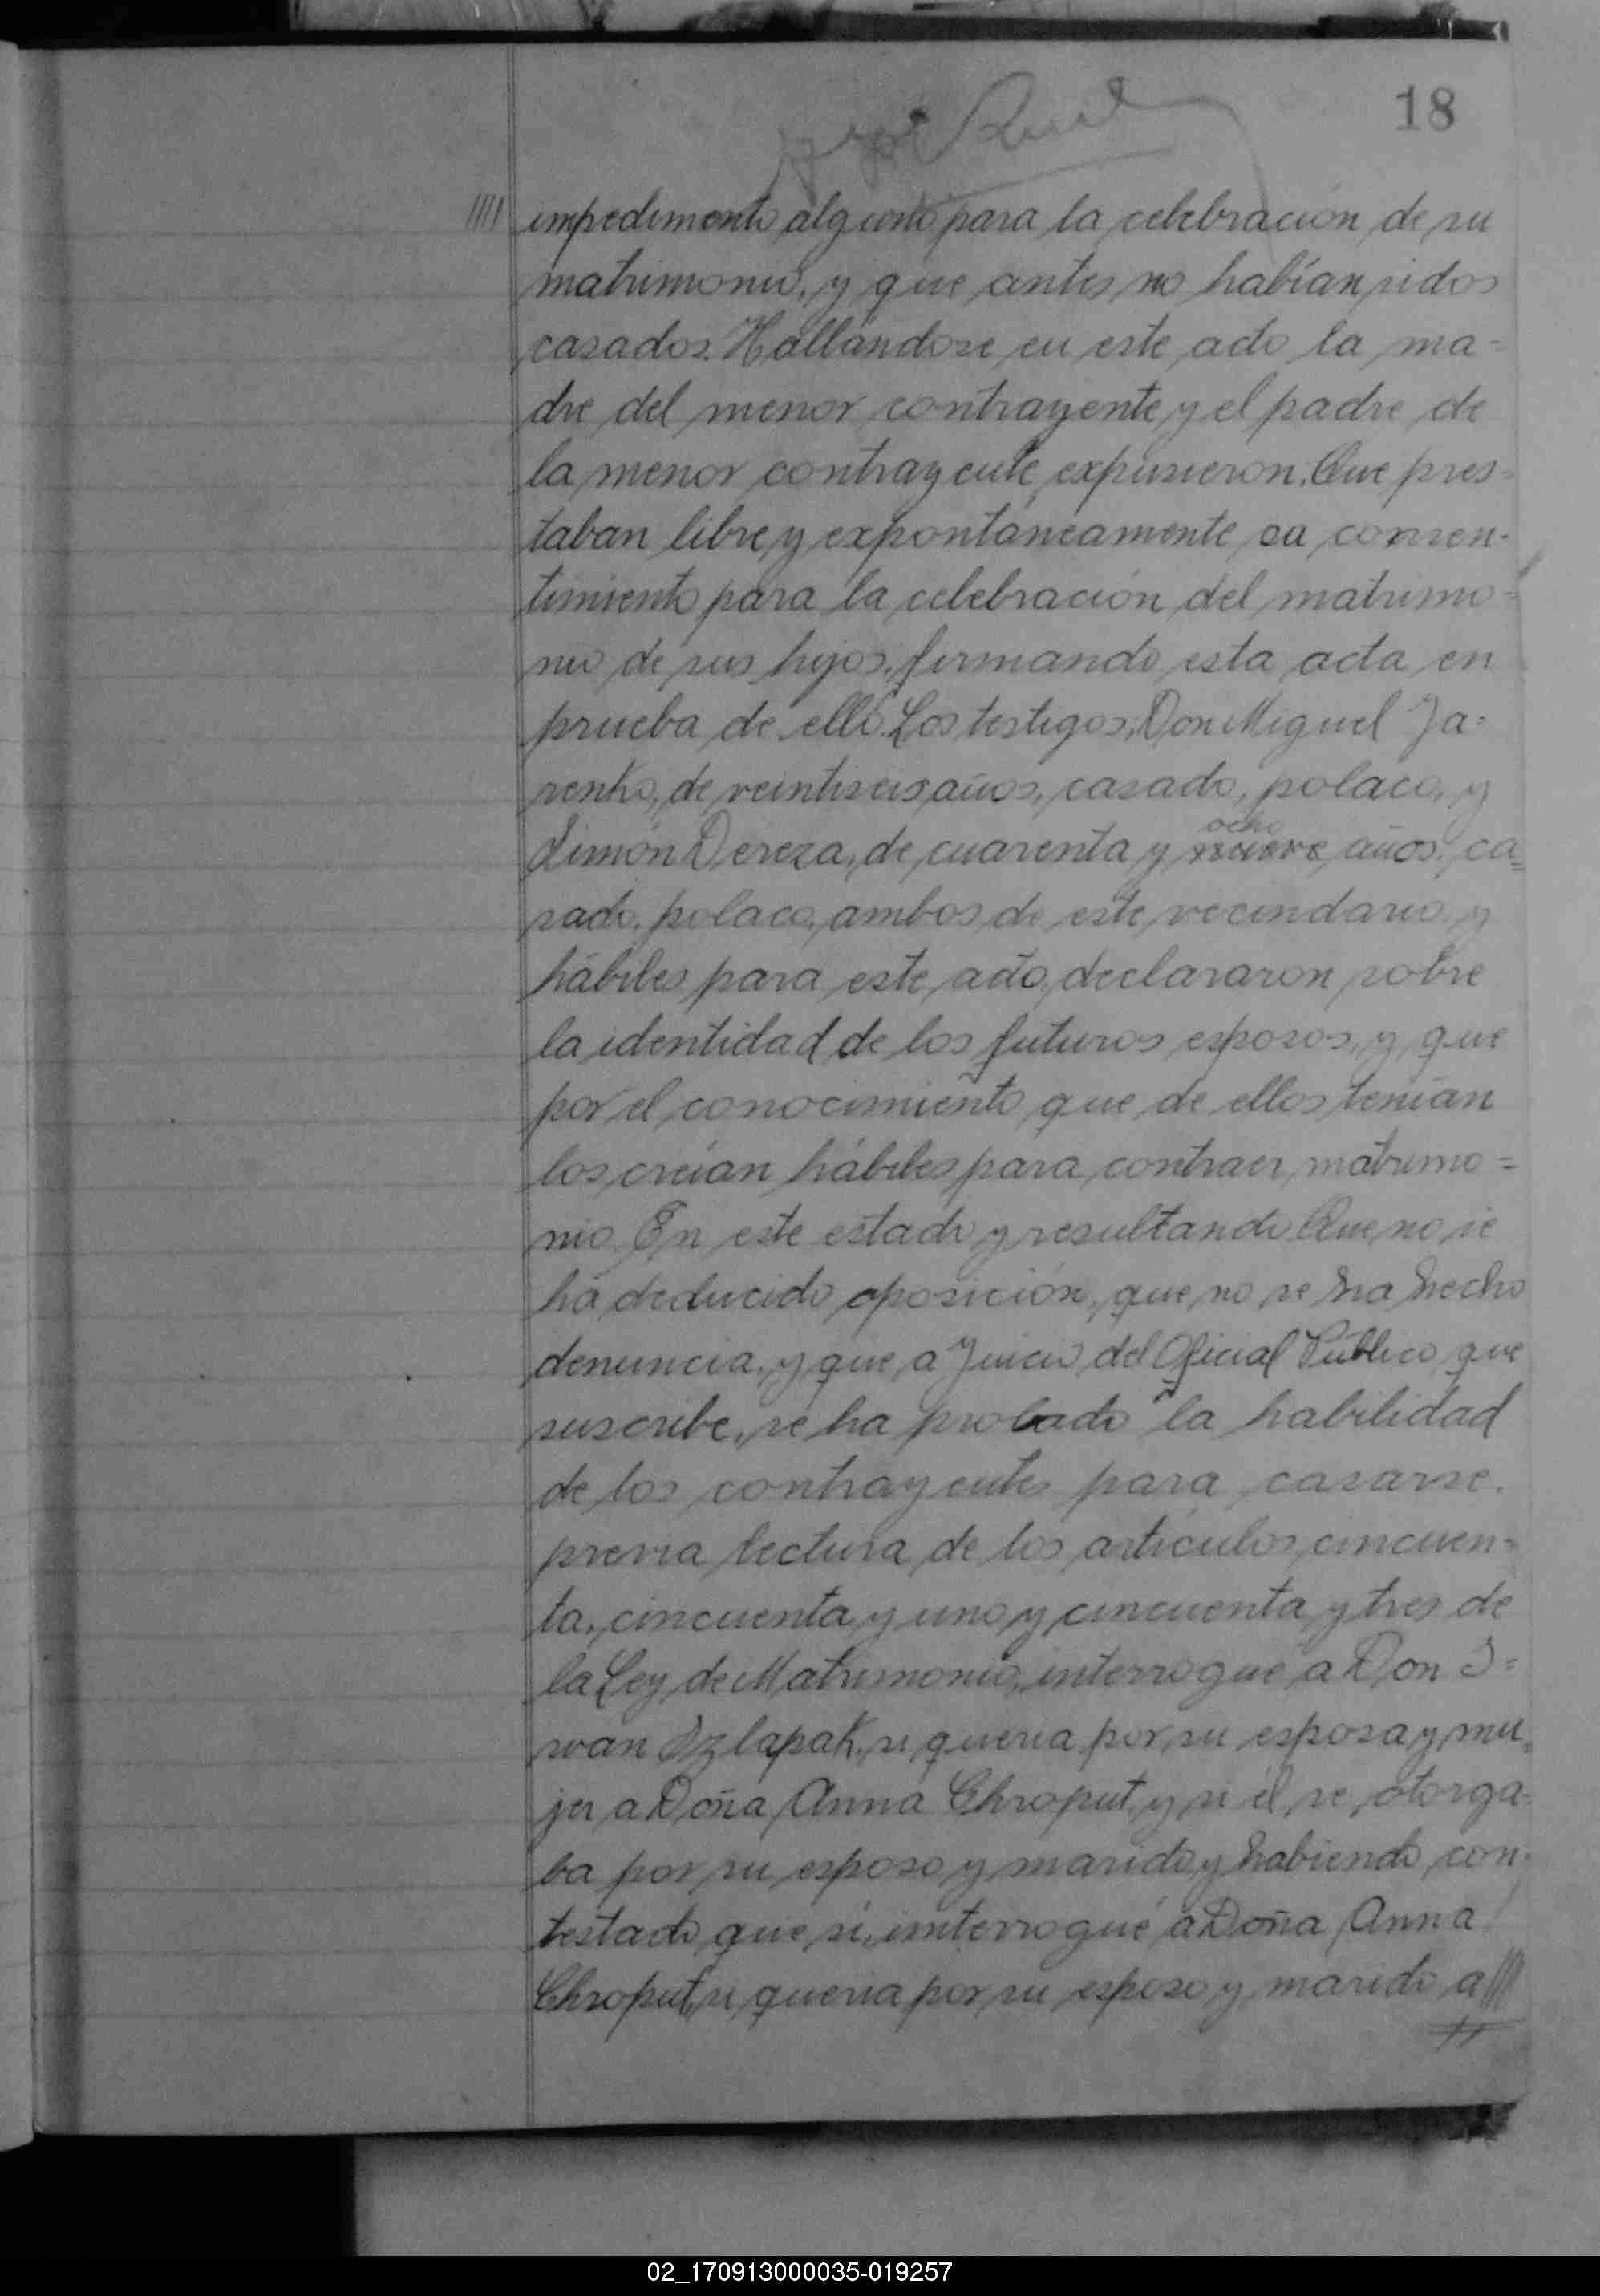 18
//// impedimento alguno para la celebración de su
matrimonio, y que antes no habían sidos
casados. Hallándose en este acto la ma-
dre del menor contrayente y el padre de
la menor contrayente, expusieron. Que pres-
taban libre y expontáneamente su consen-
timiento para la celebración del matrimo=
nio de sus hijos, firmando esta acta en
prueba de ello. Los testigos, Don Miguel Ja=
renko, de veintiseis años, casado, polaco, y
ocho
Simón Dereza, de cuarenta y nueve años, ca=
sado, polaco, ambos de este vecindario y
hábiles para este acto, declararon sobre
la identidad de los futuros esposos, y que
por el conocimiento que de ellos tenían
los creían hábiles para contraer matrimo=
nio. En este estado y resultando Que no se
ha deducido oposición, que no se ha hecho
denuncia, y que a Juicio del Oficial Público que
suscribe, se ha probado la habilidad
de los contrayentes para casarse.
previa lectura de los artículos cincuen=
ta, cincuenta y uno y cincuenta y tres de
la Ley de Matrimonio, interrogué a Don I=
wan Szlapak, si quería por su esposa y mu=
jer a Doña Anna Chroput, y si él se otorga=
ba por su esposo y marido y habiendo con-
testado que sí, imterrogué a Doña Anna
Chroput, si quería por su esposo y marido a ///
02_170913000035-019257